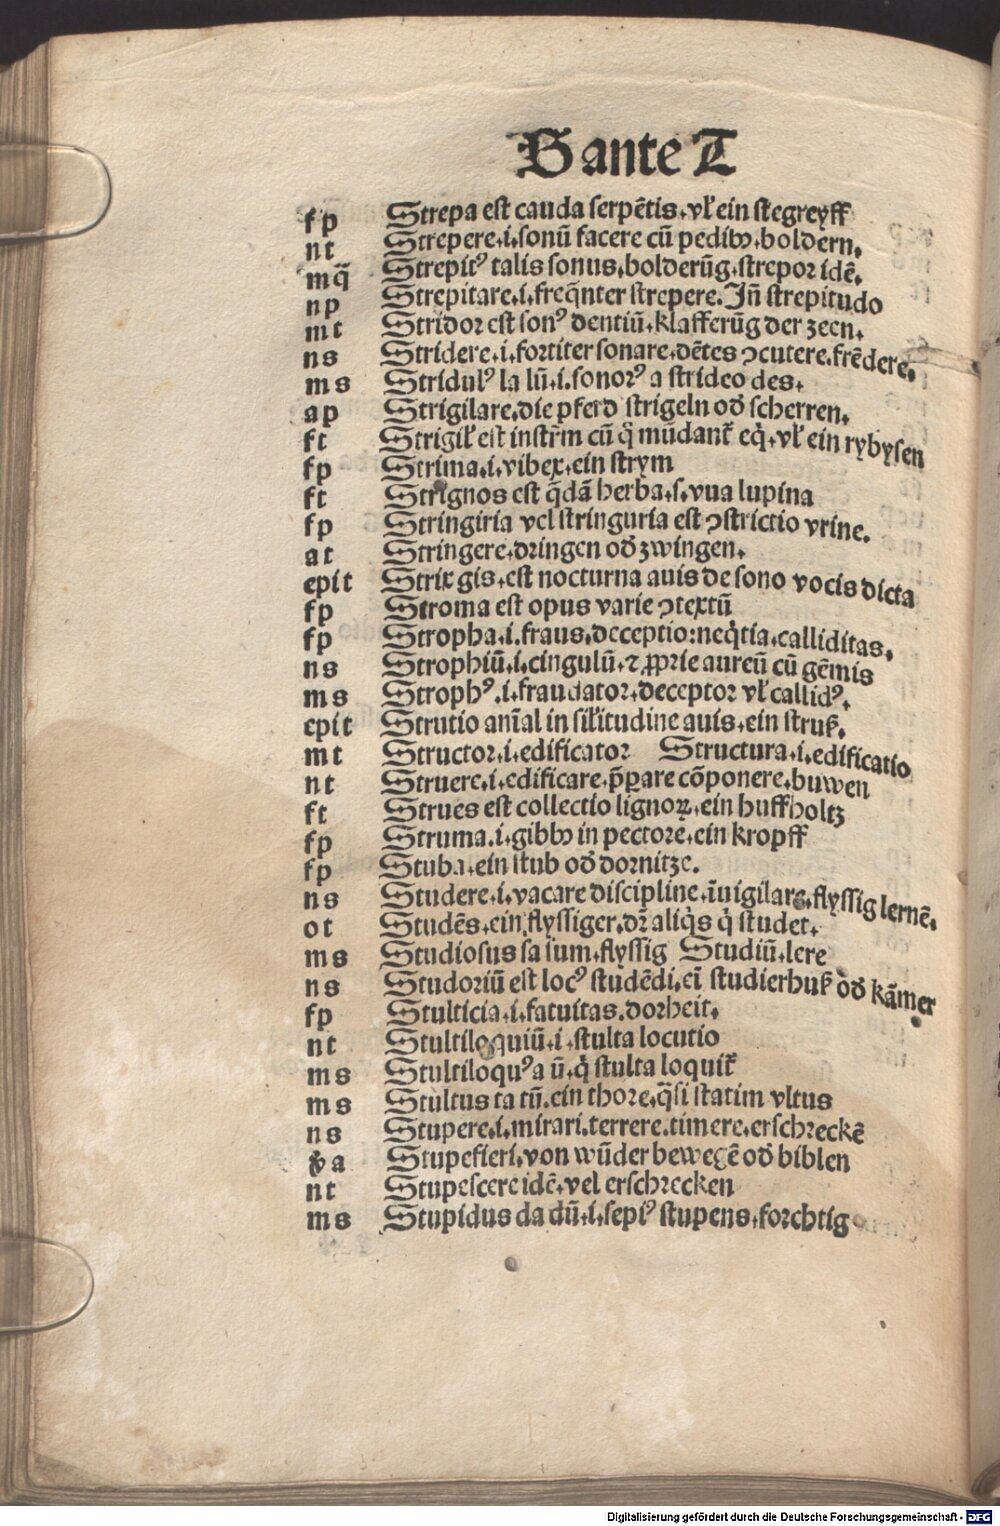 S ante T
fp Strepa est cauda serpētis. vł ein stegreyff
nt Strepere .i. sonū facere cū pedibꝫ. boldern.
mq̄ Strepitꝰ talis sonus. bolderūg. strepor idē.
np Strepitare .i. freq̄nter strepere. Jn̄ strepitudo
mt Stridor est sonꝰ dentiū. klafferūg der zeen.
ns Stridere .i. fortiter sonare. dētes ꝯcutere. frēdere.
ms Stridulꝰ la lū .i. sonorꝰ a strideo des.
ap Strigilare. die pferd strigeln od̓ scherren.
ft Strigił est instr̄m cū q̇ mūdant᷑ eq̇. vł ein rybysen
fp Strima .i. vibex. ein strym
ft Strignos est q̄dā herba .s. vua lupina
fp Stringiria vel stringuria est ꝯstrictio vrine.
at Stringere. dringen od̓ zwingen.
epit Strix gis. est nocturna auis de sono vocis dicta
fp Stroma est opus varie ꝯtextū
fp Stropha .i. fraus. deceptio: neq̇tia. calliditas.
ns Strophiū .i. cingulū. ⁊ ꝓprie aureū cū gēmis
ms Strophꝰ .i. fraudator. deceptor vł callidꝰ.
epit Strutio anīal in siłitudine auis. ein struß.
mt Structor .i. edificator Structura .i. edificatio
nt Struere .i. edificare. p̄ꝑare cōponere. buwen
ft Strues est collectio lignoꝝ. ein huffholtz
fp Struma .i. gibbꝫ in pectore. ein kropff
fp Stuba. ein stub od̓ dornitze.
ns Studere .i. vacare discipline. īuigilare. flyssig lernē.
ot Studēs. ein flyssiger. dr̄ aliq̇s q̇ studet.
ms Studiosus sa sum. flyssig Studiū. lere
ns Studoriū est locꝰ studēdi. eī studierhuß od̓ kām̄er
fp Stulticia .i. fatuitas. dorheit.
nt Stultiloquiū .i. stulta locutio
ms Stultiloquꝰ a ū. q̇ stulta loquit᷑
ms Stultus ta tū. ein thore. q̄si statim vltus
ns Stupere .i. mirari. terrere. timere. erschreckē
v̓a Stupefieri. von wūder bewegē od̓ biblen
nt Stupescere idē. vel erschrecken
ms Stupidus da dū .i. sepiꝰ stupens. forchtig
Digitalisierung gefördert durch die Deutsche Forschungsgemeinschaft - DFG